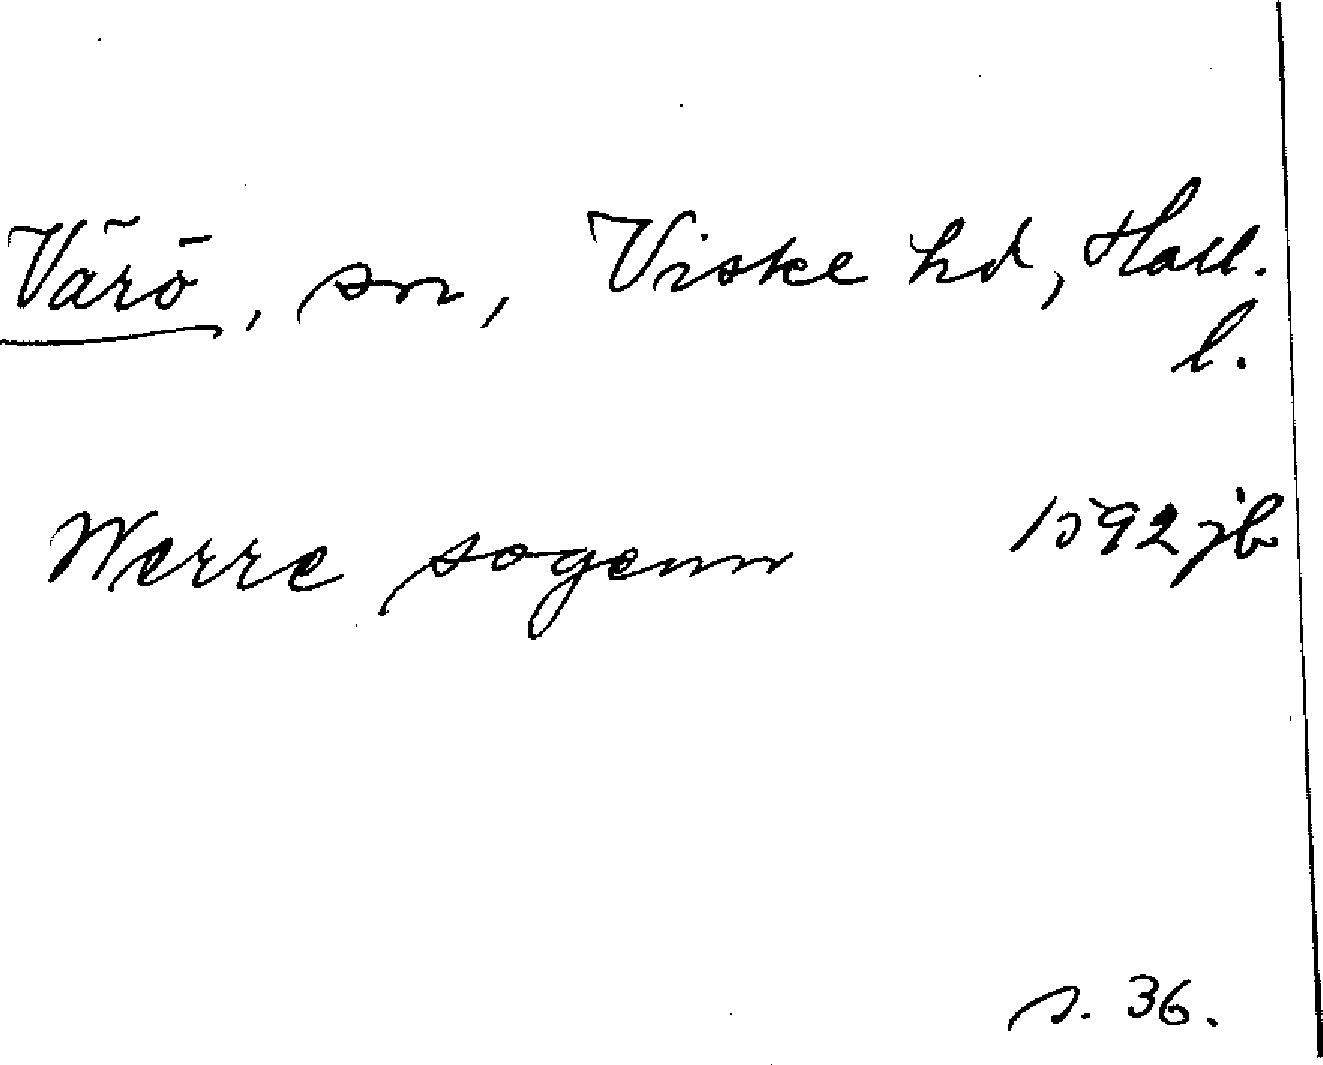 Värö, sn, Viske hd, Hall.
l.
Werre sogenn 1592 jb
s. 36.